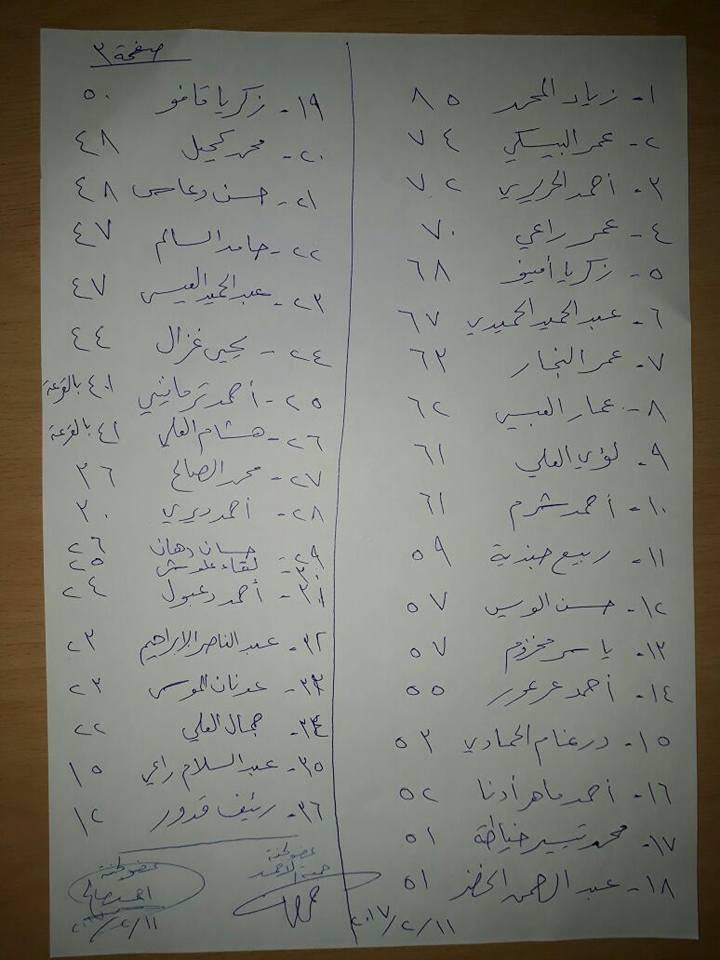 صفحة ٣
١- زياد المحمد ٨٥
٢- عمر البيسكي ٧٤
٣- أحمد الحريري ٧٢
٤- عمر راعي ٧٠
٥- زكريا أمينو ٦٨
٦- عبد الحميد الحميدي ٦٧
٧- عمر النجار ٦٣
٨- عمار العبسي ٦٢
٩- لؤي العلي ٦١
١٠- أحمد شرم ٦١
١١- ربيع جندية ٥٩
١٢- حسن الويس ٥٧
١٣- ياسر مخزوم ٥٧
١٤- أحمد عرعور ٥٥
١٥- درغنام الحمادي ٥٣
١٦- أحمد ماهر أدنا ٥٢
١٧- محمد تيسير خياطة ٥١
١٨- عبد الرحمن الخضر ٥١
٢٠١٧/٢/١١
١٩- زكريا قافو ٥٠
٢٠- محمد كحيل ٤٨
٢١- حسن دعاس ٤٨
٢٢- حامد السالم ٤٧
٢٣- عبد الحميد العيسى ٤٧
٢٤- يحيى غزال ٤٤
٢٥- أحمد ترمانيني ٤١ بالقرعة
٢٦- هشام العلي ٤١ بالقرعة
٢٧- محمد الصالح ٣٦
٢٨- أحمد ديري ٣٠
٢٩- حسان دهان ٢٦
٣٠- لقاء علوش ٢٥
٣١- أحمد دعبول ٢٤
٣٢- عبد الناصر الإبراهيم ٢٣
٣٣- عدنان الموسى ٢٣
٣٤- جمال العلي ٢٢
٣٥- عبد السلام راعي ١٥
٣٦- رئيف قدور ١٢
عضو لجنة
عضو لجنة
أحمد صالح